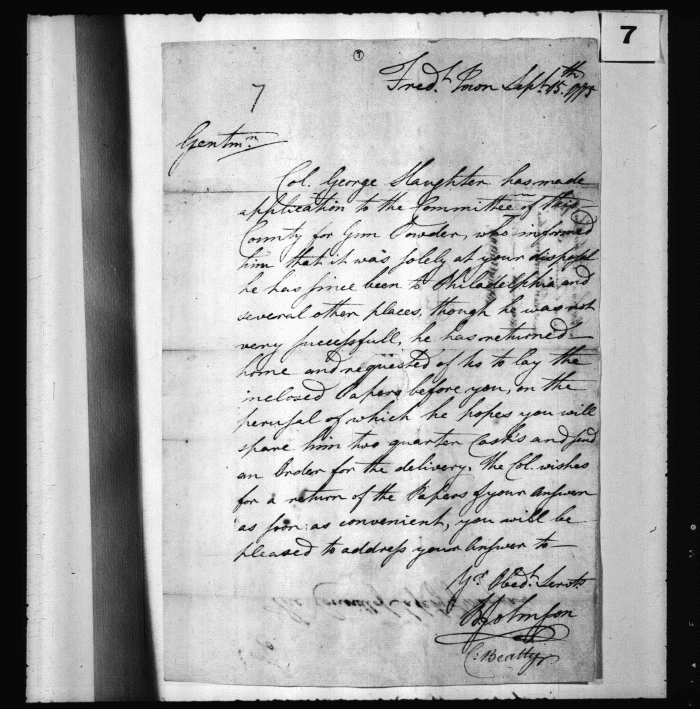 7
7
Fred.k Town Sept. 15.th 1775
Gentm.n
Col. George Slaughter has made
application to the Committee of this
County for Gun Powder, who informed
him that it was solely at your disposal
he has since been to Philadelphia and
several other places, though he was not
very successfull, he has returned
home and requested of us to lay the
inclosed Papers before you, on the
perusal of which he hopes you will
spare him two quarter Casks and send
an Order for the delivery. the Col. wishes
for a return of the Papers & your Answer
as soon as convenient, you will be
pleased to address your Answer to —
Y.r Obed.t Servts
Johnson
C: Beatty